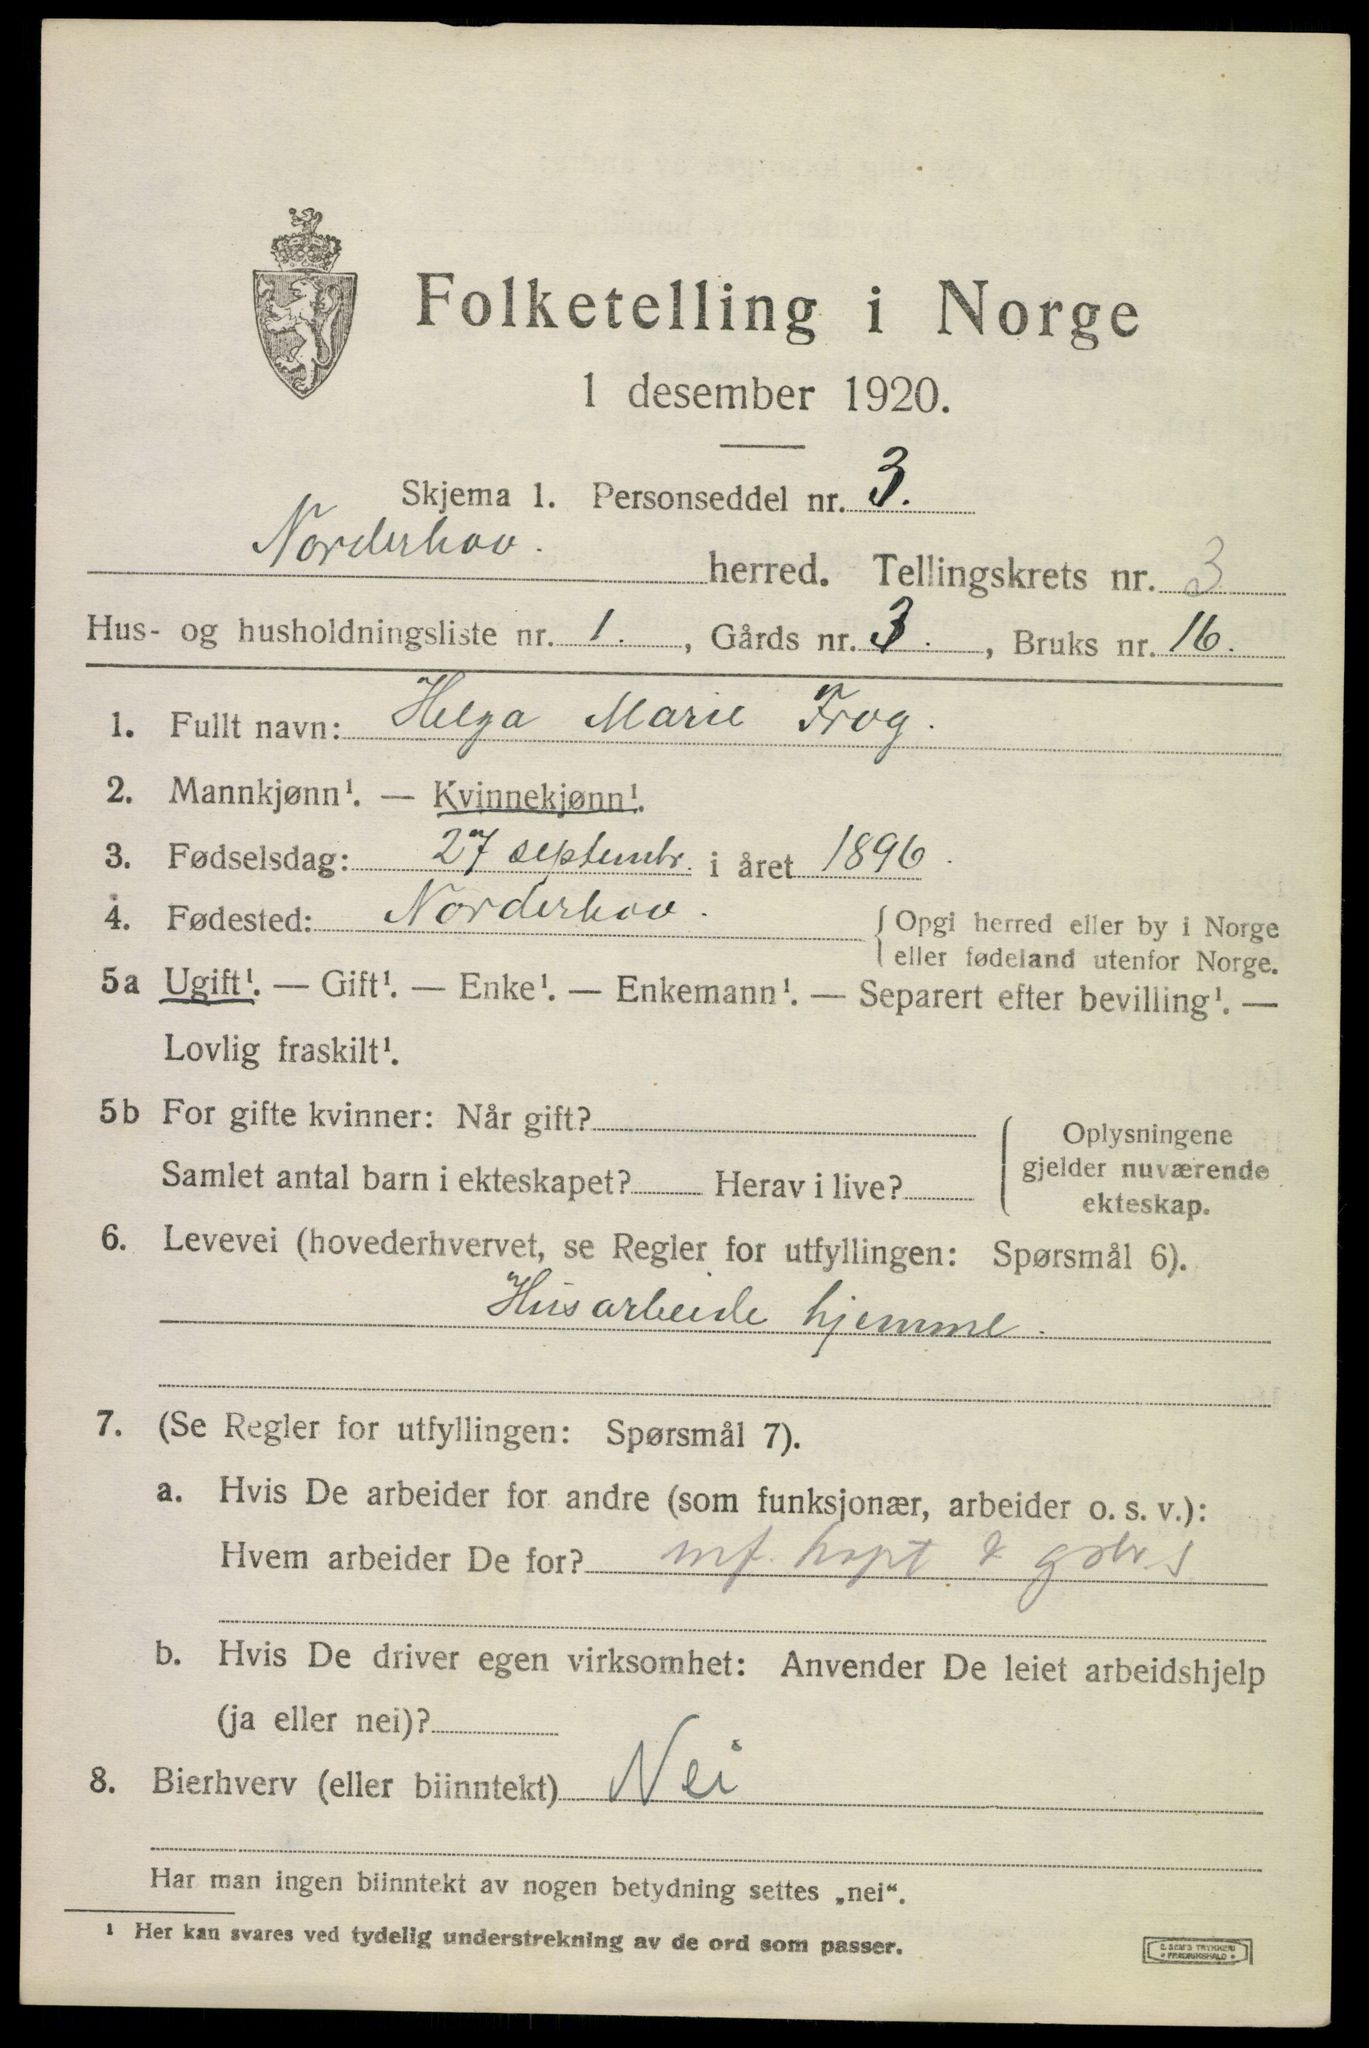 Folketelling i Norge
1 desember 1920.
Skjema 1. Personseddel nr. 3.
Norderhov. herred. Tellingskrets nr. 3
Hus- og husholdningsliste nr. 1., Gårds nr. 3., Bruks nr. 16.
1. Fullt navn: Helga Marie Frog.
2. Mannkjønn¹. — Kvinnekjønn¹.
3. Fødselsdag: 27 septembr. i året 1896.
4. Fødested: Norderhov. { Opgi herred eller by i Norge
eller fødeland utenfor Norge.
5a Ugift¹. — Gift¹. — Enke¹. — Enkemann¹. — Separert efter bevilling¹. —
Lovlig fraskilt¹.
5b For gifte kvinner: Når gift?
Samlet antal barn i ekteskapet? Herav i live?
Oplysningene
gjelder nuværende
ekteskap.
6. Levevei (hovederhvervet, se Regler for utfyllingen: Spørsmål 6).
Husarbeide hjemme.
7. (Se Regler for utfyllingen: Spørsmål 7).
a. Hvis De arbeider for andre (som funksjonær, arbeider o. s. v.):
Hvem arbeider De for?
b. Hvis De driver egen virksomhet: Anvender De leiet arbeidshjelp
(ja eller nei)?
8. Bierhverv (eller biinntekt) Nei
Har man ingen biinntekt av nogen betydning settes „nei“.
¹ Her kan svares ved tydelig understrekning av de ord som passer.
E. SEM'S TRYKKERI
FREDRIKSHALD